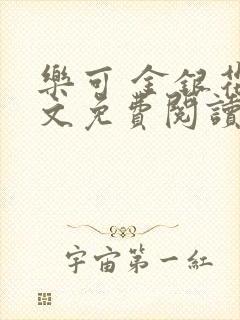 樂可 金銀花
文免費閱讀
宇宙第一紅